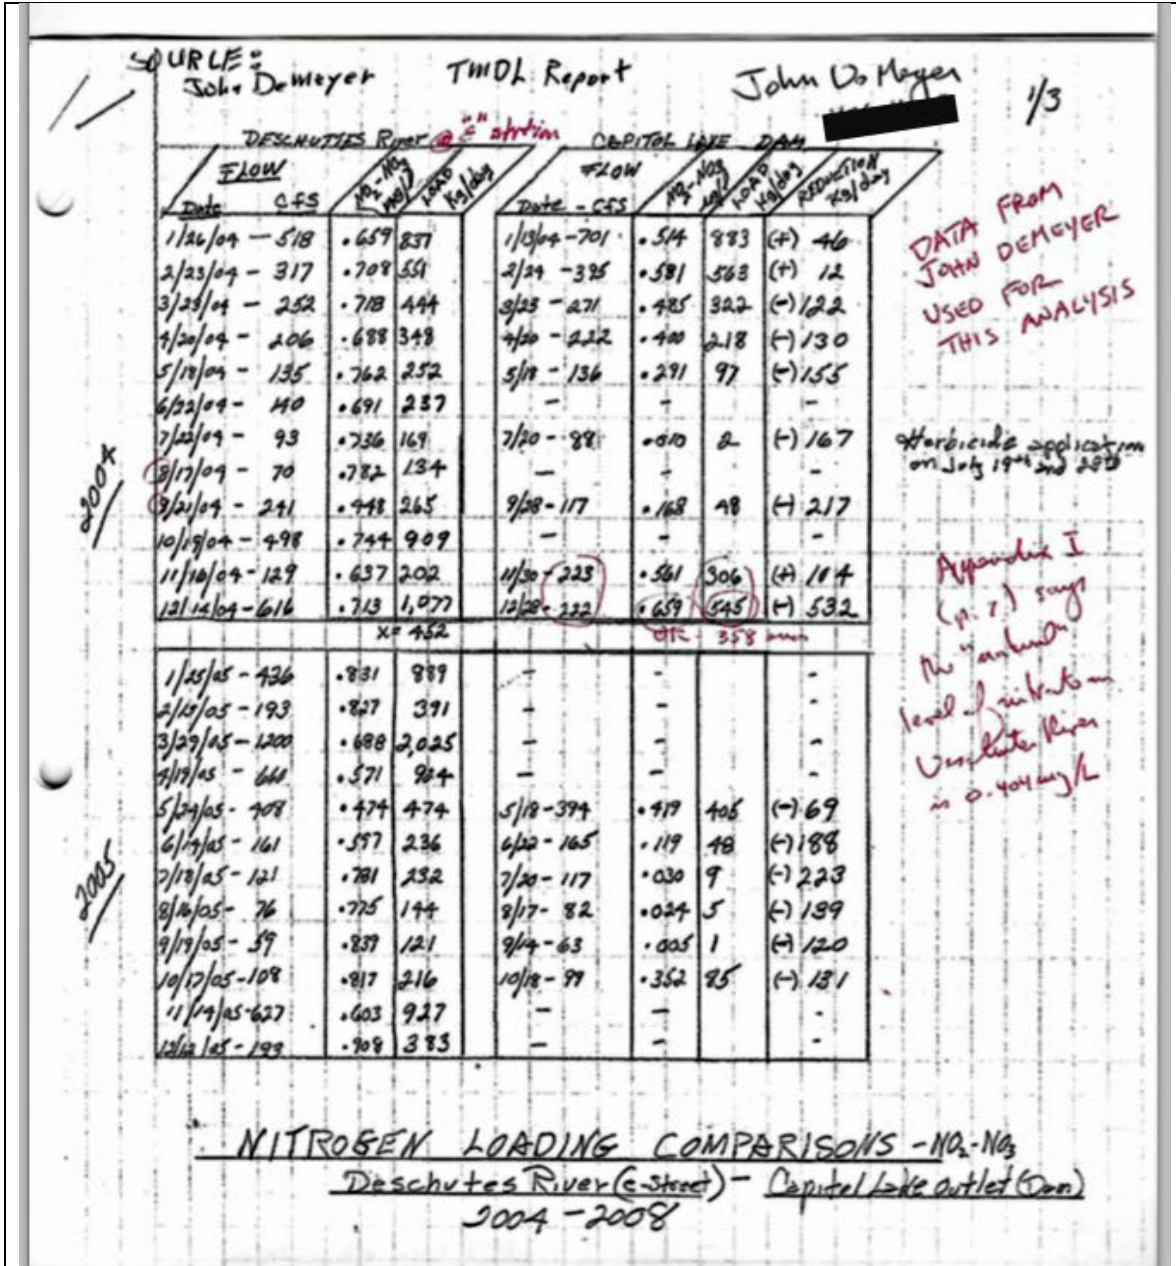 SOURCE:
John Demeyer TMDL Report John De Meyer 1/3
DESCHUTES River @ "E" station CAPITOL LAKE DAM
FLOW NO2-NO3 LOAD Kg/day FLOW NO2-NO3 LOAD Kg/day REDUCTION Kg/day
Date CFS mg/l Date - CFS mg/l
1/26/04 - 518 .659 837 1/13/04 - 701 .514 883 (+) 46
2/23/04 - 317 .708 551 2/24 - 395 .581 563 (+) 12
3/23/04 - 252 .718 444 3/23 - 271 .485 322 (-) 122
4/20/04 - 206 .688 348 4/20 - 222 .400 218 (-) 130
5/18/04 - 135 .762 252 5/18 - 136 .291 97 (-) 155
6/22/04 - 140 .691 237 - - -
7/22/04 - 93 .736 169 7/20 - 88 .010 2 (-) 167
8/17/04 - 70 .782 134 - - -
9/21/04 - 241 .448 265 9/28 - 117 .168 48 (-) 217
10/19/04 - 498 .744 909 - - -
11/16/04 - 129 .637 202 11/30 - 223 .561 306 (+) 104
12/14/04 - 616 .713 1,077 12/28 - 232 .659 545 (-) 532
x = 452 358
2004
1/25/05 - 436 .831 889 - - -
2/15/05 - 193 .827 391 - - -
3/29/05 - 1200 .688 2,025 - - -
4/19/05 - 660 .571 924 - - -
5/24/05 - 408 .474 474 5/18 - 394 .419 405 (-) 69
6/14/05 - 161 .597 236 6/22 - 165 .119 48 (-) 188
7/18/05 - 121 .781 232 7/20 - 117 .030 9 (-) 223
8/16/05 - 76 .775 144 8/17 - 82 .024 5 (-) 139
9/19/05 - 59 .839 121 9/14 - 63 .005 1 (-) 120
10/17/05 - 108 .817 216 10/18 - 99 .352 85 (-) 131
11/14/05 - 627 .603 927 - - -
12/12/05 - 193 .908 383 - - -
2005
DATA FROM
JOHN DEMEYER
USED FOR
THIS ANALYSIS
Herbicide application
on July 19th and 28th
Appendix I
(p. 7) says
the "natural"
level of nitrate in
Deschutes River
is 0.404 mg/L
NITROGEN LOADING COMPARISONS - NO2-NO3
Deschutes River (E-Street) - Capitol Lake Outlet (Dam)
2004 - 2008